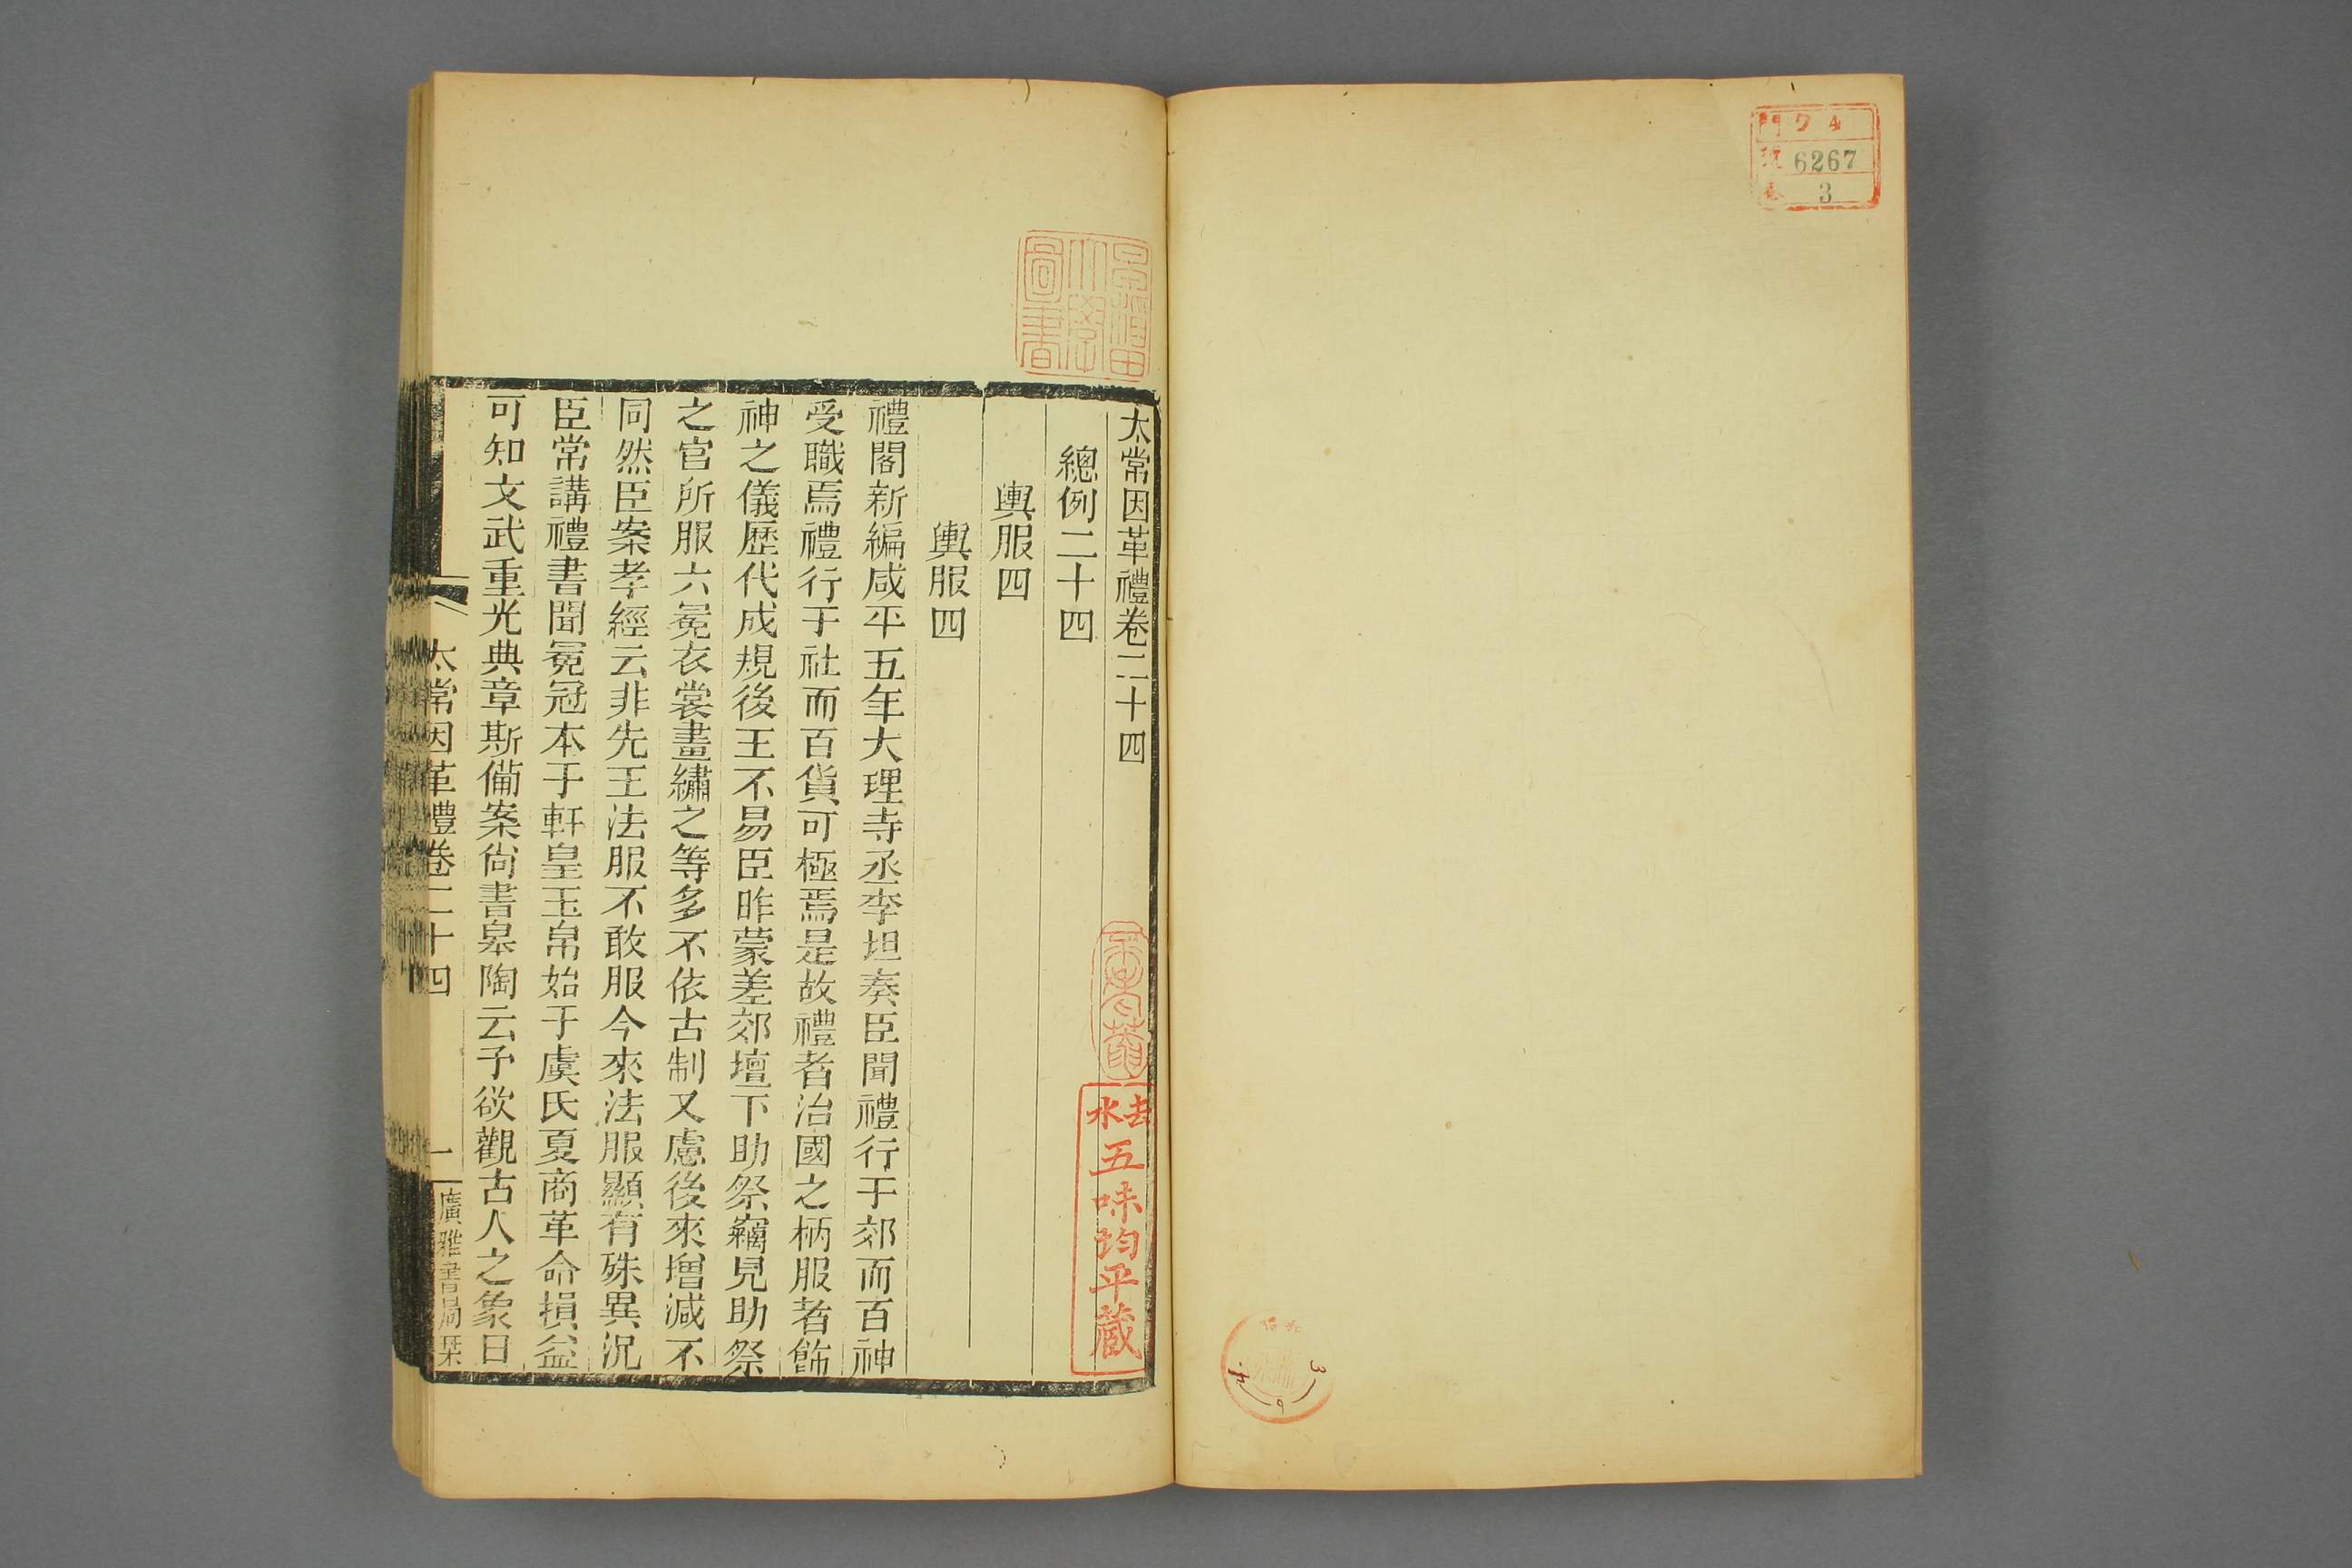 門 ワ 4
號 6267
卷 3
早稲田
大學
圖書
太常因革禮卷二十四
總例二十四
輿服四
輿服四
禮閣新編咸平五年大理寺丞李坦奏臣聞禮行于郊而百神
受職焉禮行于社而百貨可極焉是故禮者治國之柄服者飾
神之儀歷代成規後王不易臣昨蒙差郊壇下助祭竊見助祭
之官所服六冕衣裳畫繡之等多不依古制又慮後來增減不
同然臣案孝經云非先王法服不敢服今來法服顯有殊異況
臣常講禮書聞冕冠本于軒皇玉帛始于虞氏夏商革命損益
可知文武重光典章斯備案尙書皋陶云予欲觀古人之象日
太常因革禮卷二十四
一
廣雅書局栞
去水
五味均平藏
3 9 4